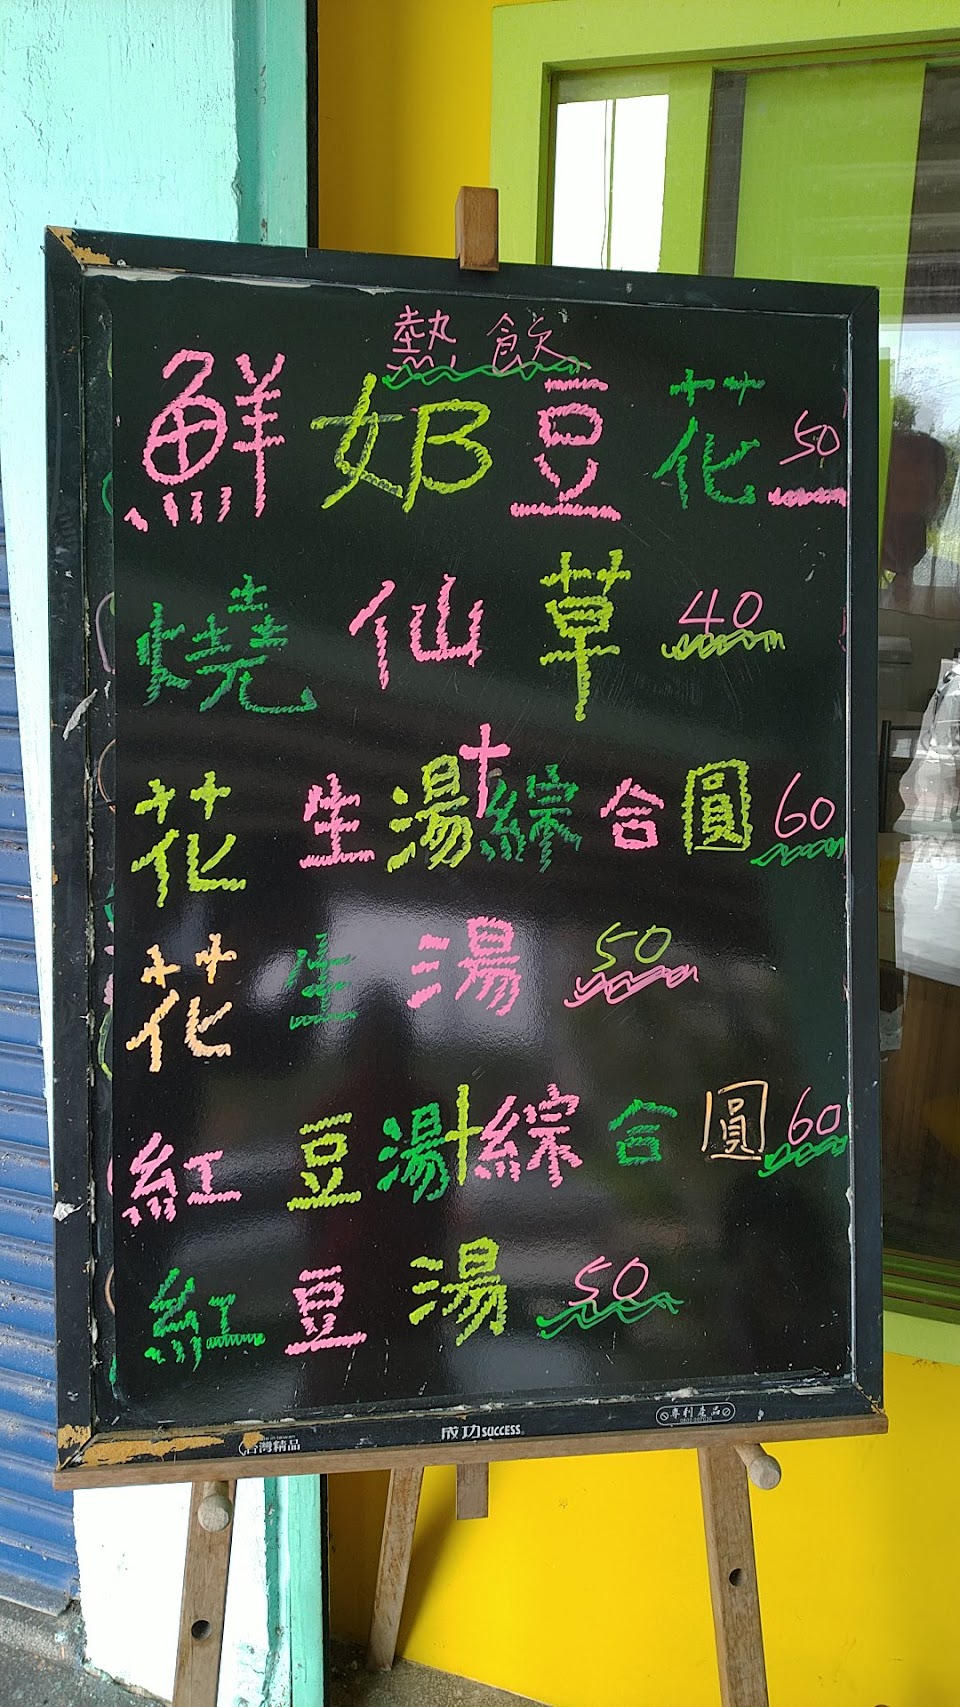 熱飲
鮮奶豆花 50
燒仙草 40
花生湯+綜合圓 60
花生湯 50
紅豆湯+綜合圓 60
紅豆湯 50
台灣精品
成功SUCCESS
專利產品